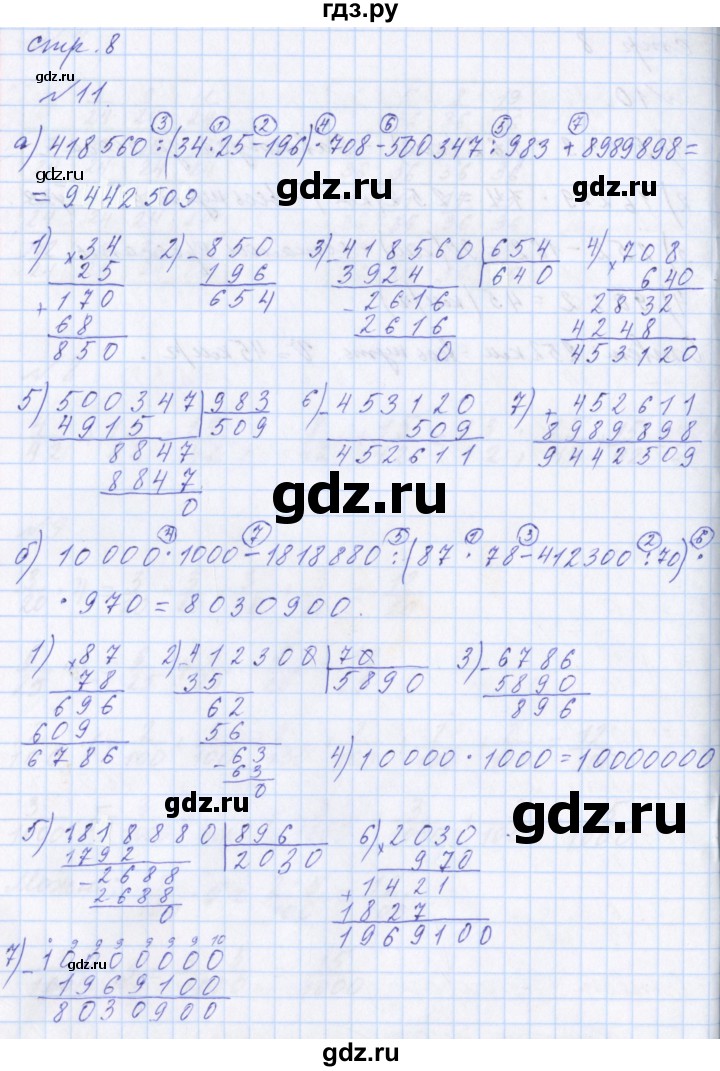 гдз.рф
стр. 8
gdz.ru
№ 11.
③ ① ② ④ ⑥ ⑤ ⑦
а) 418 560 : (34·25-196)·708-500347:983+8989898=
gdz.ru gdz.ru
= 9442509
1) ×34 2) -850 3) -418560 654 4) ×708
25 196 3924 640 640
+170 654 -2616 2832
68 2616 4248
850 0 453120
5) 500347 983 6) -453120 7) +452611
4915 509 509 8989898
8847 452611 9442509
8847
0
gdz.ru
④ ⑦ ⑤ ① ③ ② ⑥
б) 10 000·1000-1818880:(87·78-412300:70)·
·970=8030900.
1) ×87 2) -412300 70 3) -6786
78 35 5890 5890
696 62 896
609 56
6786 -63 4) 10000·1000=10000000
63
0
gdz.ru gdz.ru
5) 1818880 896 6) ×2030
1792 2030 970
-2688 +1421
2688 1827
0 1969100
9 9 9 9 9 10
7) -10000000
gdz.ru
1969100
8030900
gdz.ru
gdz.ru